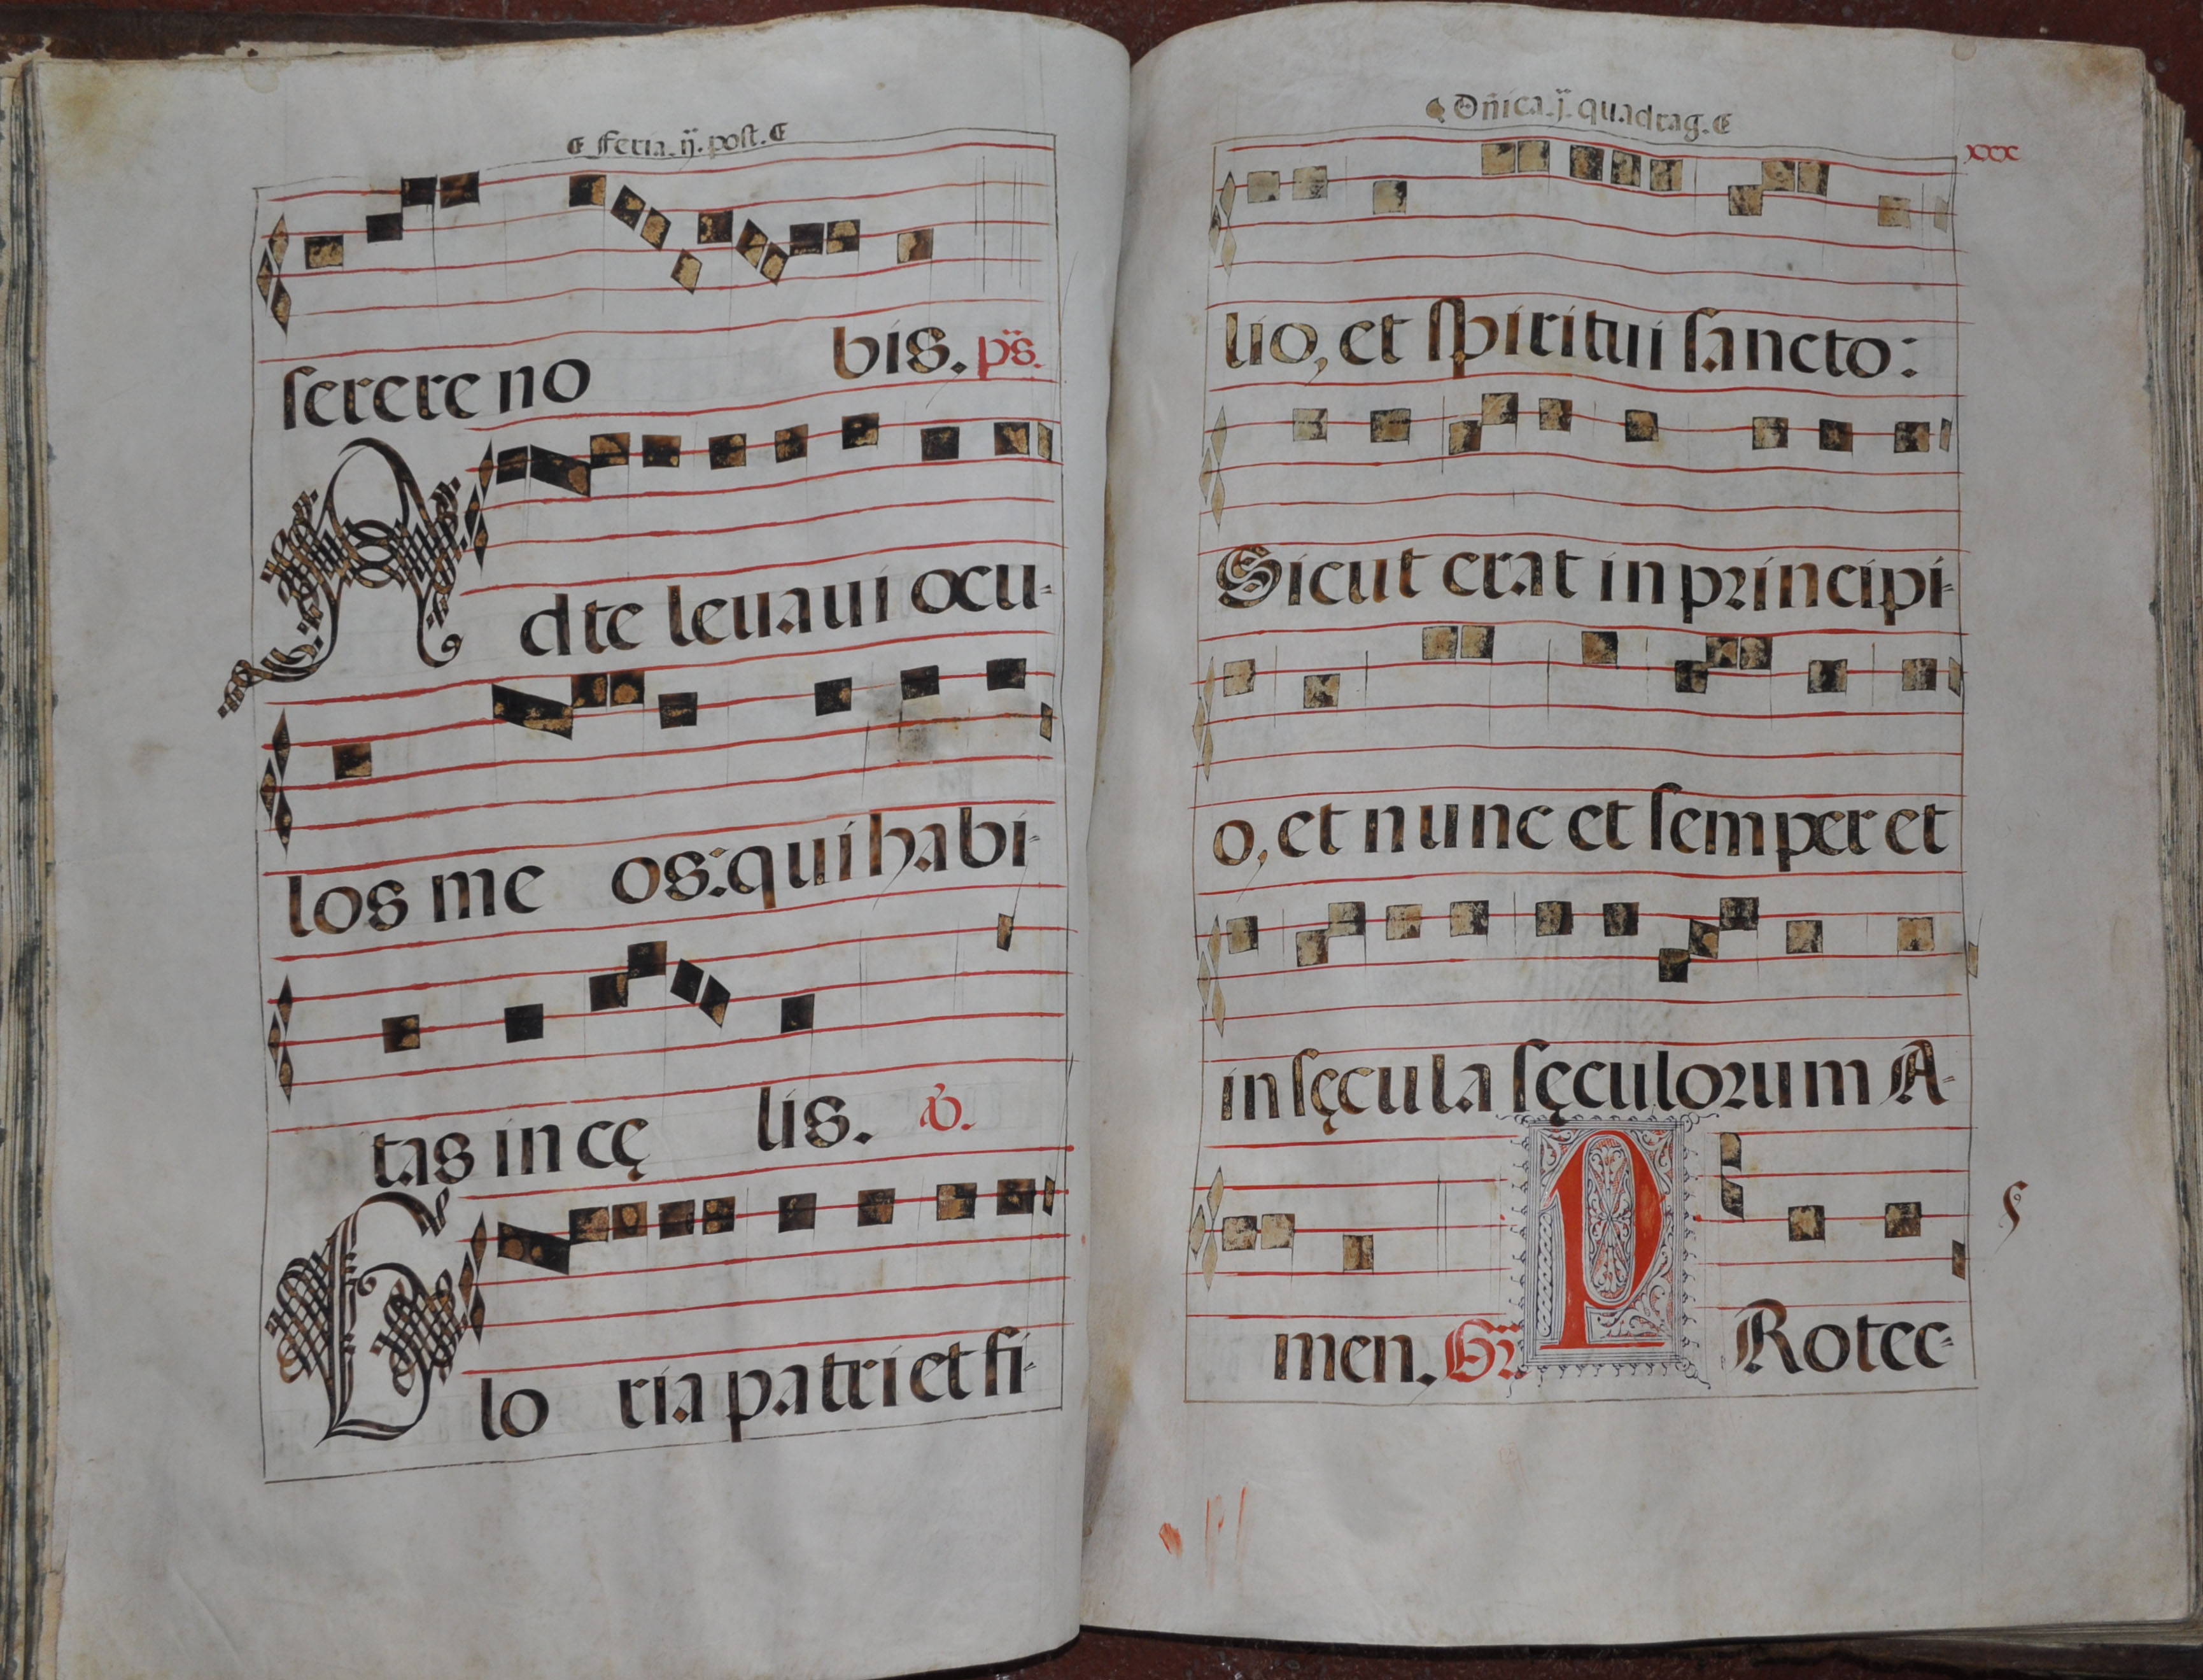 Feria.ij.post.
serere no bis. ps̄.
Ad te leuaui ocu-
los me os: qui habi-
tas in cę lis. ℣.
Glo ria patri et fi-
Dñica.j.quadrag.
xxx
lio, et spiritui sancto:
Sicut erat in principi-
o, et nunc et semper et
in sęcula sęculorum A-
men. Gr̄. PRotec-